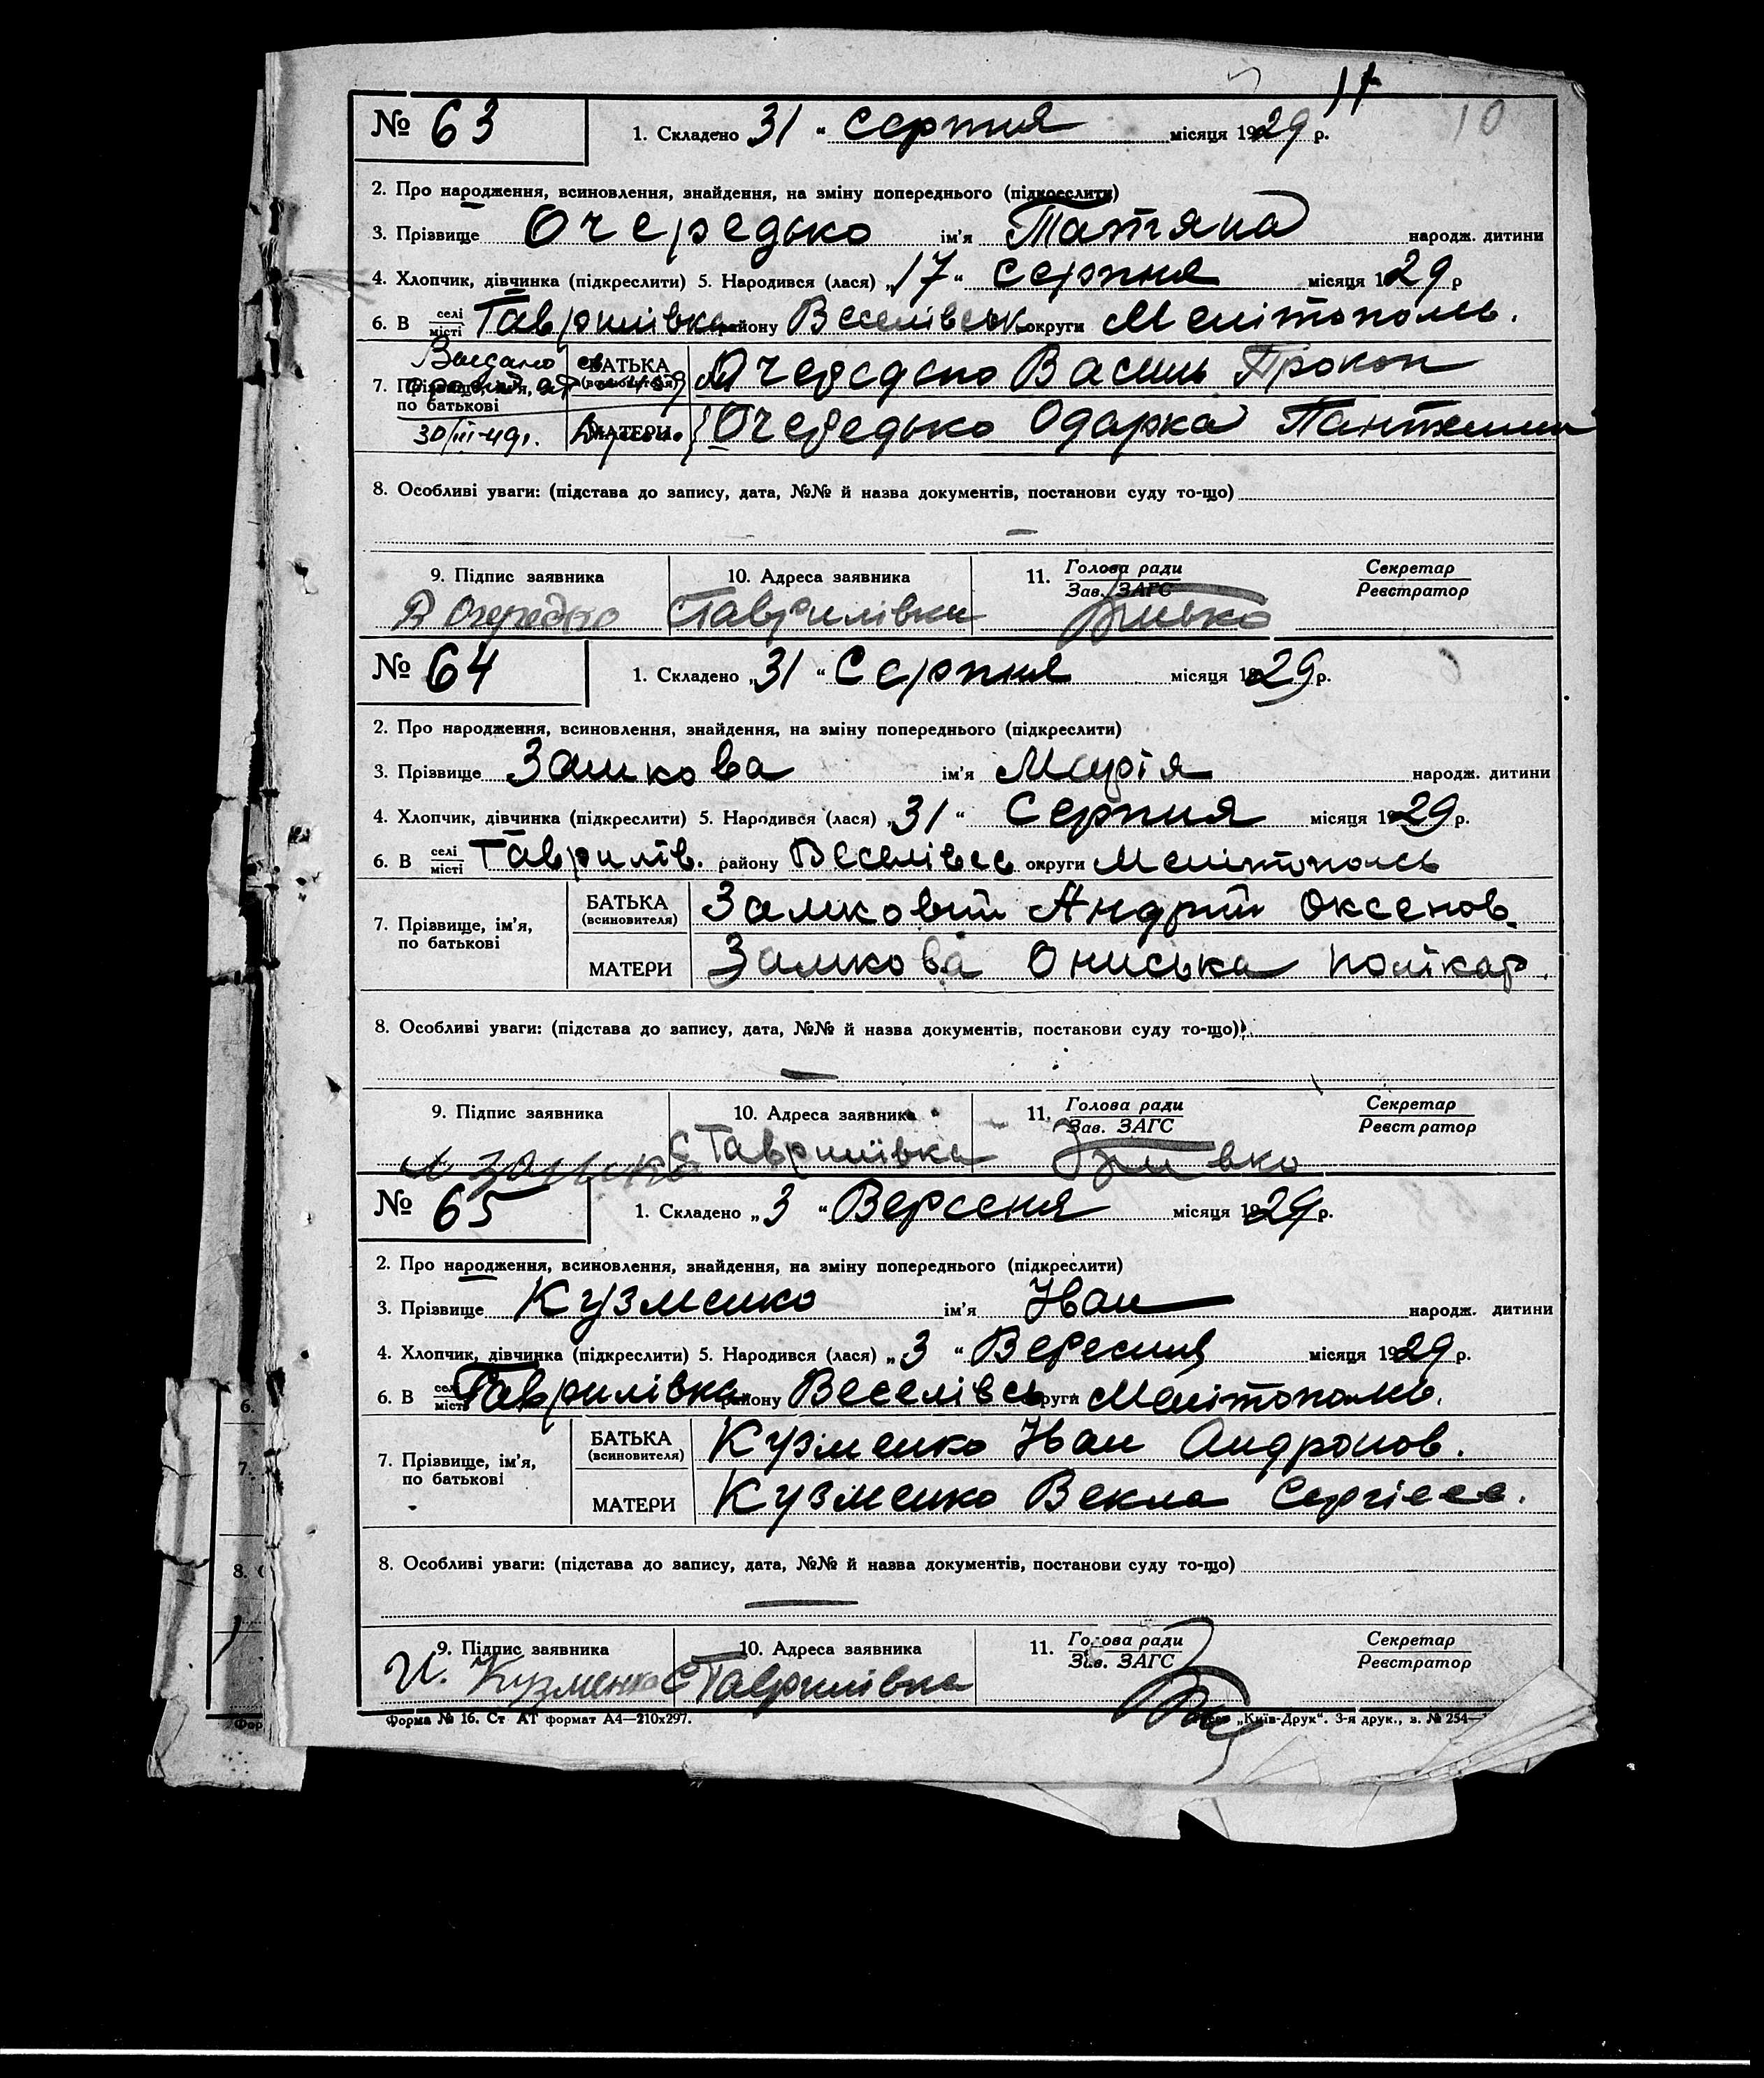 17
10
№ 63 1. Складено 31 " серпня місяця 1929 р.
2. Про народження, всиновлення, знайдення, на зміну попереднього (підкреслити)
3. Прізвище Очередько ім'я Татяна народж. дитини
4. Хлопчик, дівчинка (підкреслити) 5. Народився (лася) „17" серпня місяця 1929 р
6. В селі місті Гаврилівка району Веселівськ округи Мелітополь.
7. Прізвище, ім'я, по батькові
БАТЬКА (всиновителя) Очередько Василь Прокоп
30/III-49г. МАТЕРИ Очередько Одарка
8. Особливі уваги: (підстава до запису, дата, №№ й назва документів, постанови суду то-що)
9. Підпис заявника 10. Адреса заявника 11. Голова ради Зав. ЗАГС Секретар Реєстратор
В Очередько с Гаврилівка
№ 64 1. Складено „31 " Серпня місяця 1929 р.
2. Про народження, всиновлення, знайдення, на зміну попереднього (підкреслити)
3. Прізвище Замкова ім'я Марія народж. дитини
4. Хлопчик, дівчинка (підкреслити) 5. Народився (лася) „31 " Серпня місяця 1929 р.
6. В селі місті Гаврилів. району Веселівсь округи Мелітополь
7. Прізвище, ім'я, по батькові
БАТЬКА (всиновителя) Замковий Андрій Оксенов.
МАТЕРИ Замкова Ониська Полікар.
8. Особливі уваги: (підстава до запису, дата, №№ й назва документів, постанови суду то-що)
9. Підпис заявника 10. Адреса заявника 11. Голова ради Зав. ЗАГС Секретар Реєстратор
с Гаврилівка
№ 65 1. Складено „3 " Версеня місяця 1929 р.
2. Про народження, всиновлення, знайдення, на зміну попереднього (підкреслити)
3. Прізвище Кузменко ім'я Іван народж. дитини
4. Хлопчик, дівчинка (підкреслити) 5. Народився (лася) „3 " Вересня місяця 1929 р.
6. В селі місті Гаврилівка району Веселівсь округи Мелітополь.
7. Прізвище, ім'я, по батькові
БАТЬКА (всиновителя) Кузменко Іван Андронов.
МАТЕРИ Кузменко Векла Сергіев.
8. Особливі уваги: (підстава до запису, дата, №№ й назва документів, постанови суду то-що)
9. Підпис заявника 10. Адреса заявника 11. Голова ради Зав. ЗАГС Секретар Реєстратор
И. Кузменко с Гаврилівка
Форма № 16. Ст АТ формат А4—210х297. „Київ-Друк". 3-я друк., з. № 254—